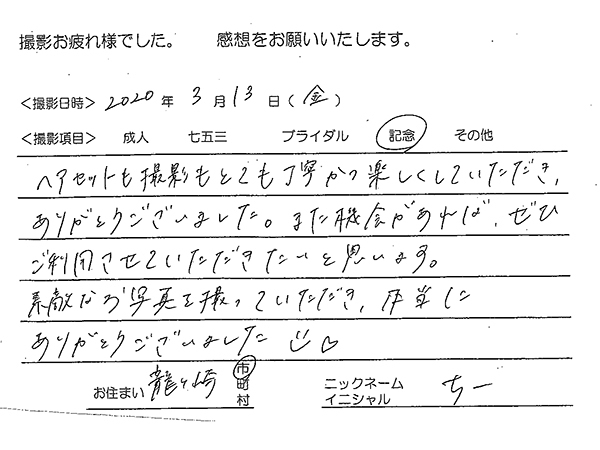 撮影お疲れ様でした。 感想をお願いいたします。
＜撮影日時＞ 2020 年 3 月 13 日（金）
＜撮影項目＞ 成人 七五三 ブライダル 記念 その他
ヘアセットも撮影もとても丁寧かつ楽しくしていただき、
ありがとうございました。また機会があれば、ぜひ
ご利用させていただきたいと思います。
素敵なお写真を撮っていただき、本当に
ありがとうございました
お住まい 龍ヶ崎 市町村 ニックネーム イニシャル ちー